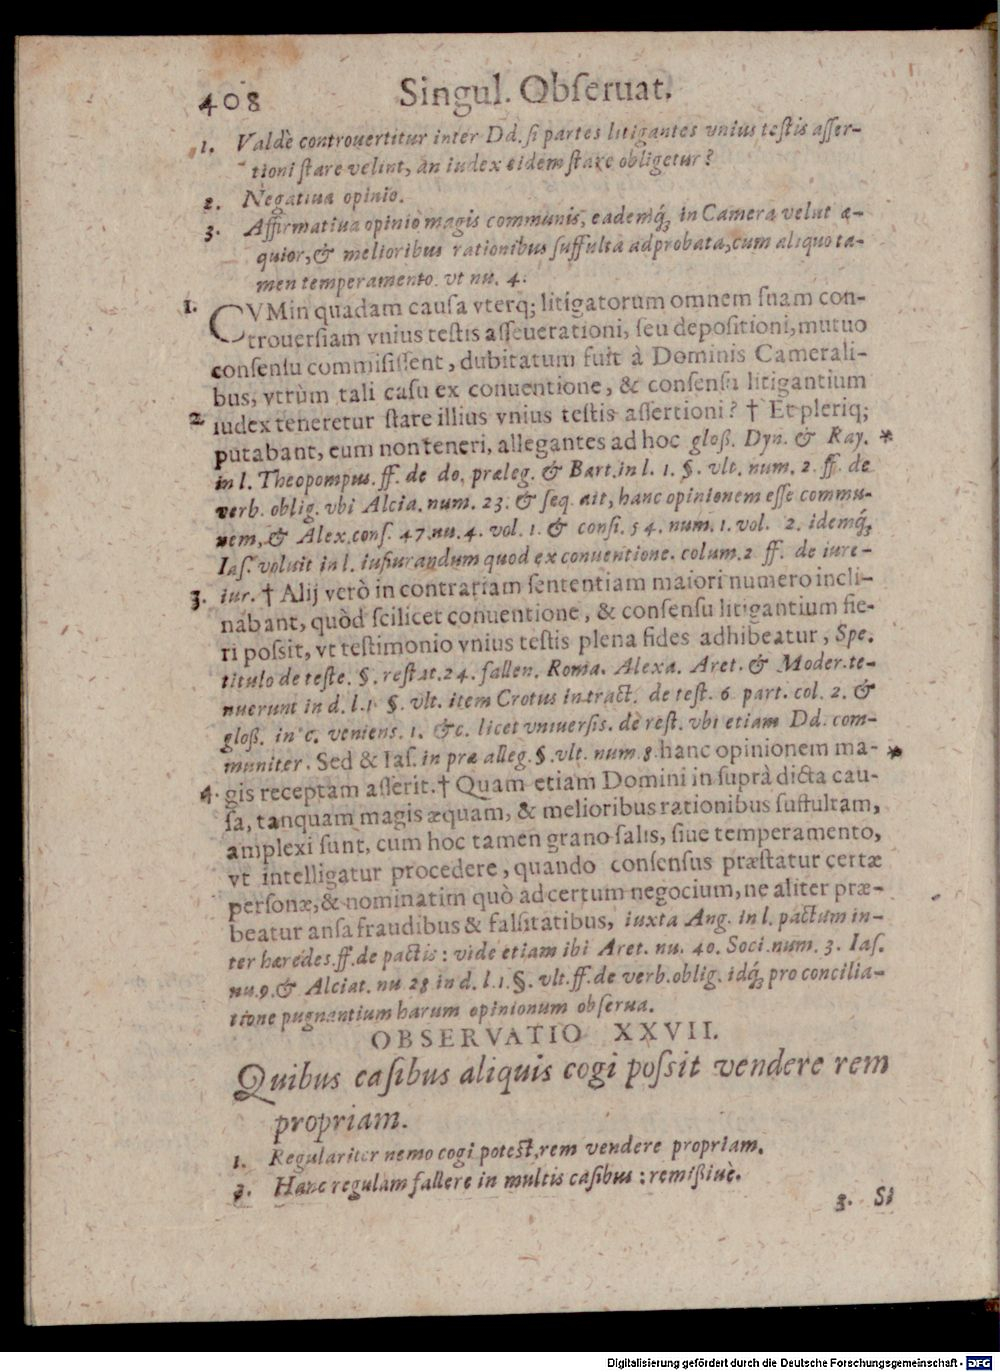 408 Singul. Obſeruat.
1. Valdè controuertitur inter Dd. ſi partes litigantes vnius teſtis aſſer-
tioni ſtare velint, an iudex eidem ſtare obligetur?
2. Negatiua opinio.
3. Affirmatiua opinio magis communis, eademq́ꝫ in Camera velut æ-
quior, & melioribus rationibus ſuffulta adprobata, cum aliquo ta-
men temperamento. vt nu. 4.
1. CVM in quadam cauſa vterq; litigatorum omnem ſuam con-
trouerſiam vnius teſtis aſſeuerationi, ſeu depoſitioni, mutuo
conſenſu commiſiſſent, dubitatum fuit à Dominis Camerali-
bus, vtrùm tali caſu ex conuentione, & conſenſu litigantium
2. iudex teneretur ſtare illius vnius teſtis aſſertioni? † Et pleriq;
putabant, eum non teneri, allegantes ad hoc gloß. Dyn. & Ray. *
in l. Theopompus. ff. de do. præleg. & Bart. in l. 1. §. vlt. num. 2. ff. de
verb. oblig. vbi Alcia. num. 23. & ſeq. ait, hanc opinionem eſſe commu-
nem, & Alex. conſ. 47. nu. 4. vol. 1. & conſi. 54. num. 1. vol. 2. idemq́ꝫ
Iaſ. voluit in l. iuſiurandum quod ex conuentione. colum. 2 ff. de iure-
3. iur. † Alij verò in contrariam ſententiam maiori numero incli-
nabant, quòd ſcilicet conuentione, & conſenſu litigantium fie-
ri poſsit, vt teſtimonio vnius teſtis plena fides adhibeatur, Spe.
titulo de teſte. §. reſtat. 24. fallen. Roma. Alexa. Aret. & Moder. te-
nuerunt in d. l. 1 §. vlt. item Crotus in tract. de teſt. 6 part. col. 2. &
gloß. in c. veniens. 1. &c. licet vniuerſis. de teſt. vbi etiam Dd. com-
muniter. Sed & Iaſ. in præ alleg. §. vlt. num. 8. hanc opinionem ma- *
4. gis receptam aſſerit. † Quam etiam Domini in ſuprà dicta cau-
ſa, tanquam magis æquam, & melioribus rationibus ſuffultam,
amplexi ſunt, cum hoc tamen grano ſalis, ſiue temperamento,
vt intelligatur procedere, quando conſenſus præſtatur certæ
perſonæ, & nominatim quò ad certum negocium, ne aliter præ-
beatur anſa fraudibus & falſitatibus, iuxta Ang. in l. pactum in-
ter hæredes. ff. de pactis: vide etiam ibi Aret. nu. 40. Soci. num. 3. Iaſ.
nu. 9. & Alciat. nu. 28 in d. l. 1. §. vlt. ff. de verb. oblig. idq́ꝫ pro concilia-
tione pugnantium harum opinionum obſerua.
OBSERVATIO XXVII.
Quibus caſibus aliquis cogi poſsit vendere rem
propriam.
1. Regulariter nemo cogi poteſt, rem vendere propriam.
2. Hanc regulam fallere in multis caſibus: remißiuè.
3. Si
Digitalisierung gefördert durch die Deutsche Forschungsgemeinschaft - DFG